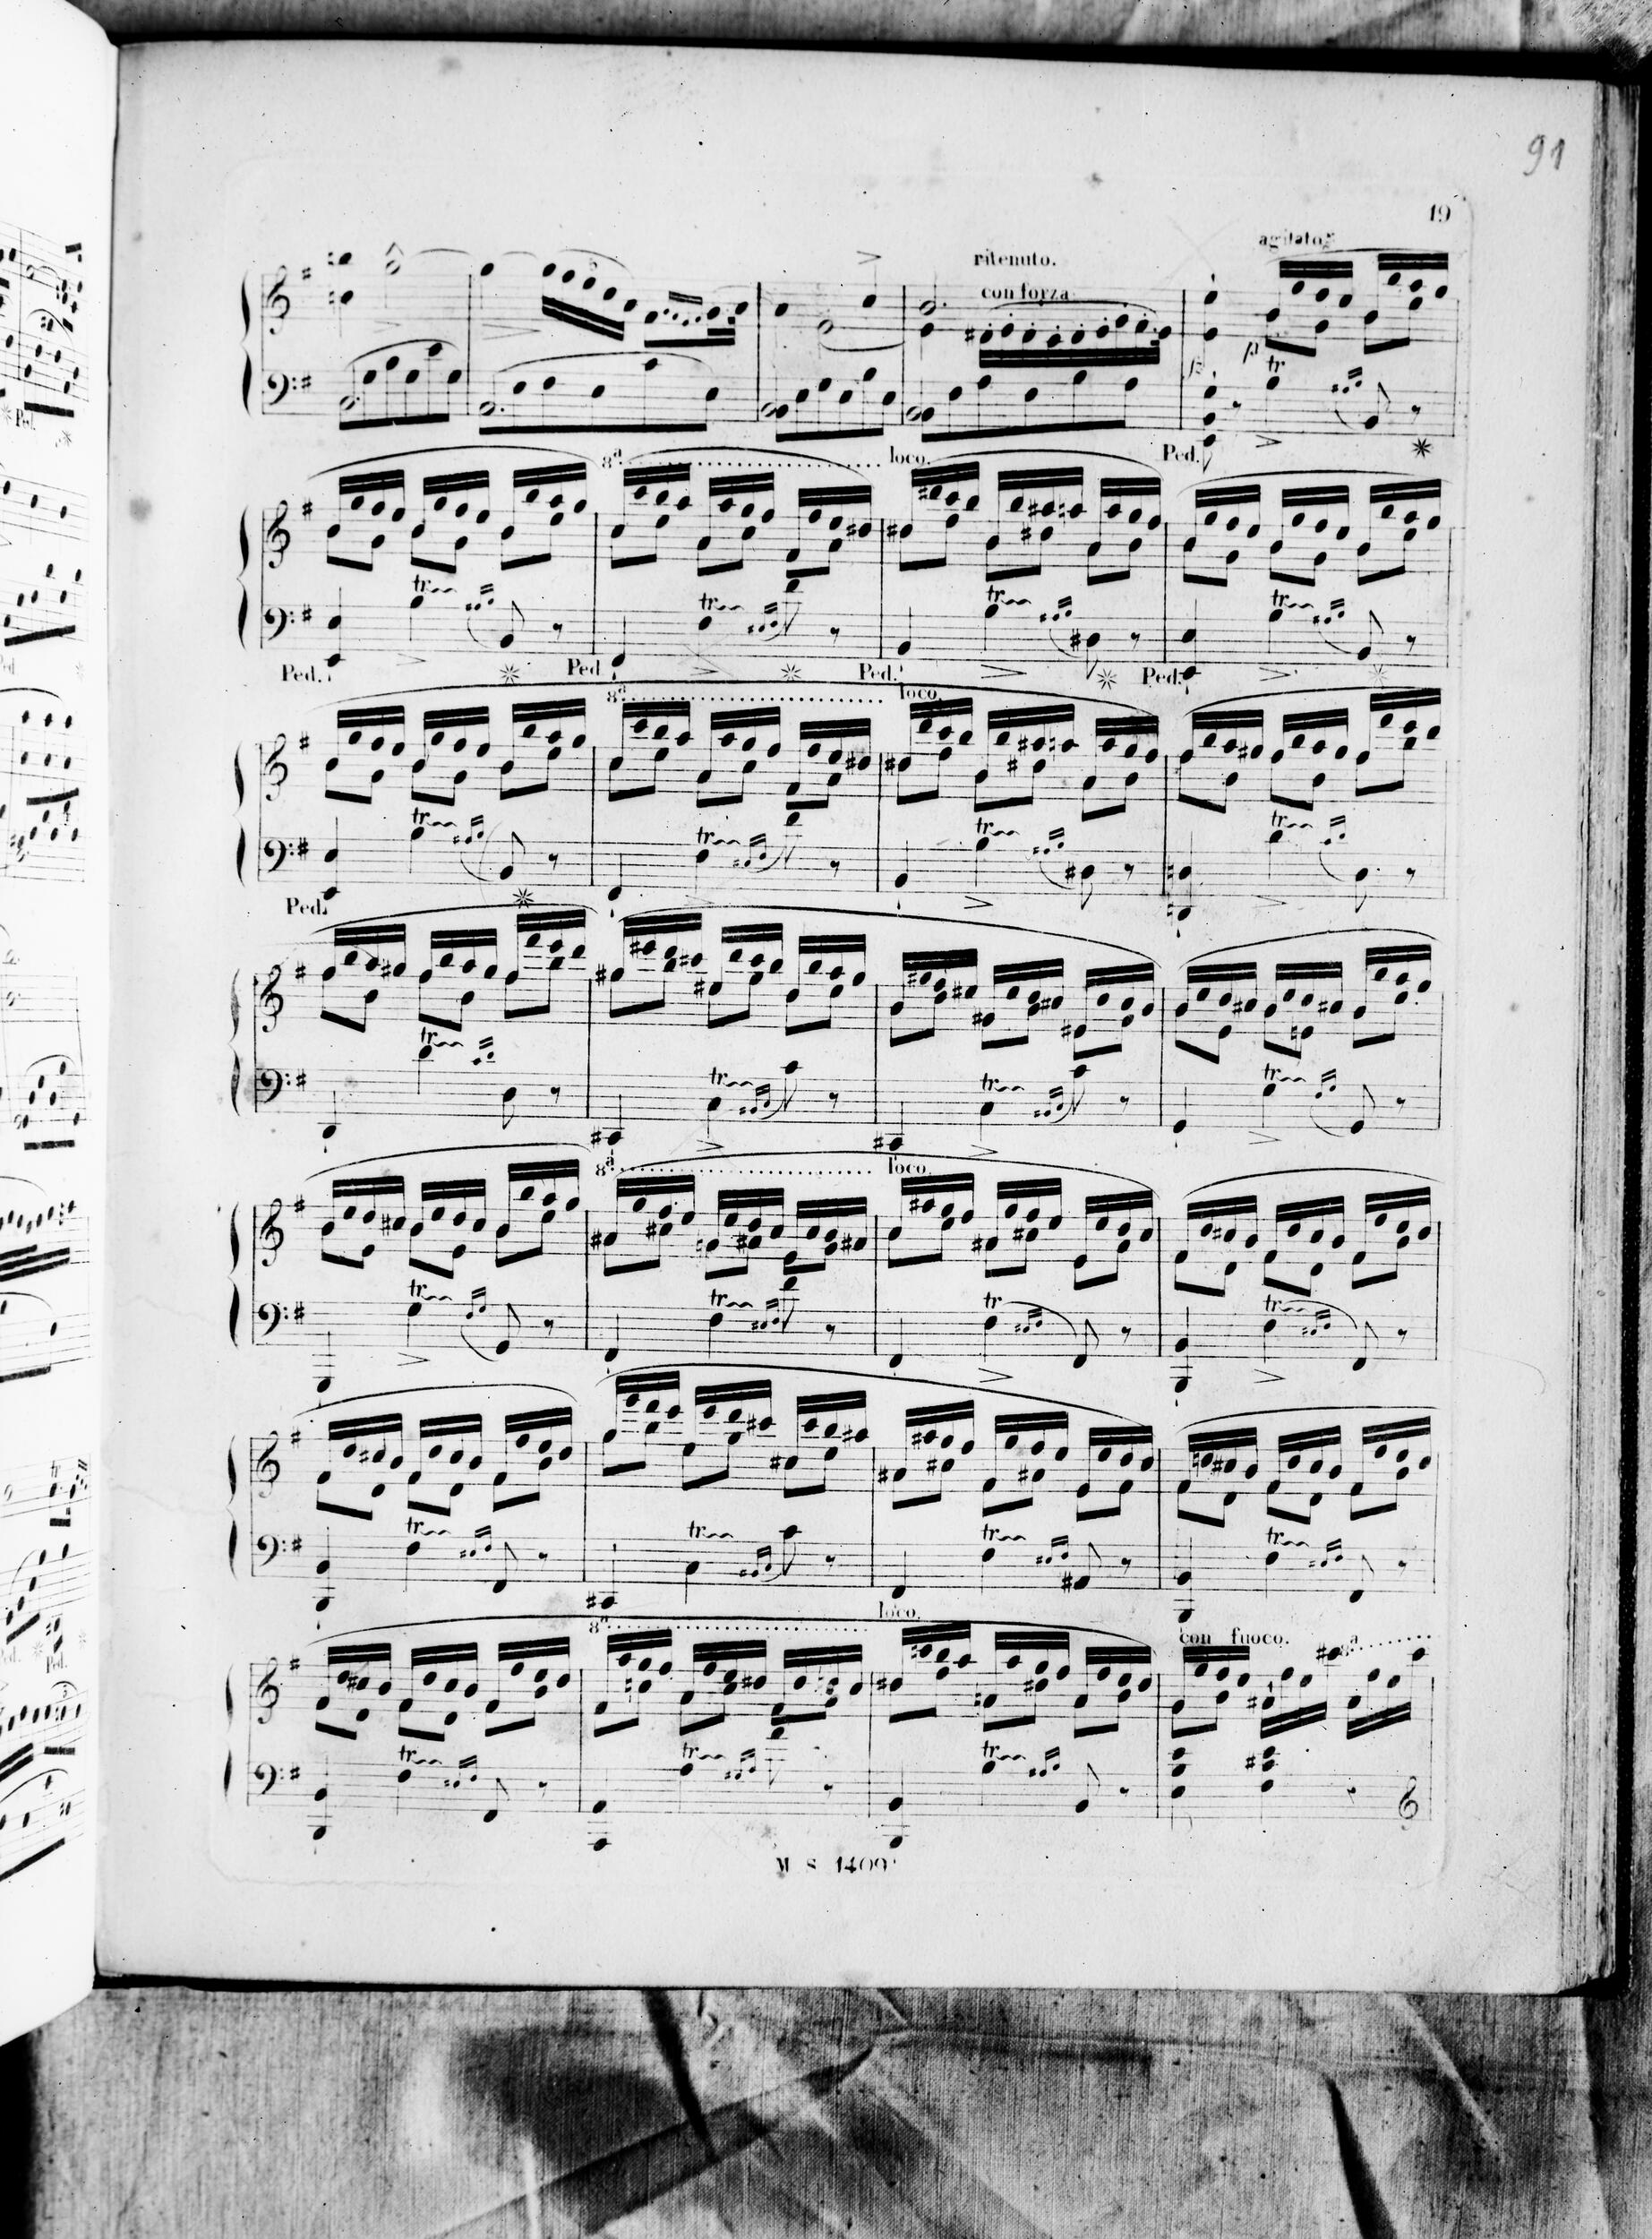 91
19
agitato.
ritenuto.
con forza
tr
Ped.
8ª loco.
tr tr tr tr
Ped. Ped Ped. Ped.
8ª loco.
tr tr tr tr
Ped.
tr tr tr tr
8ª loco.
tr tr tr tr
tr tr tr tr
8ª loco.
con fuoco. 8ª
tr tr tr
M S 1409